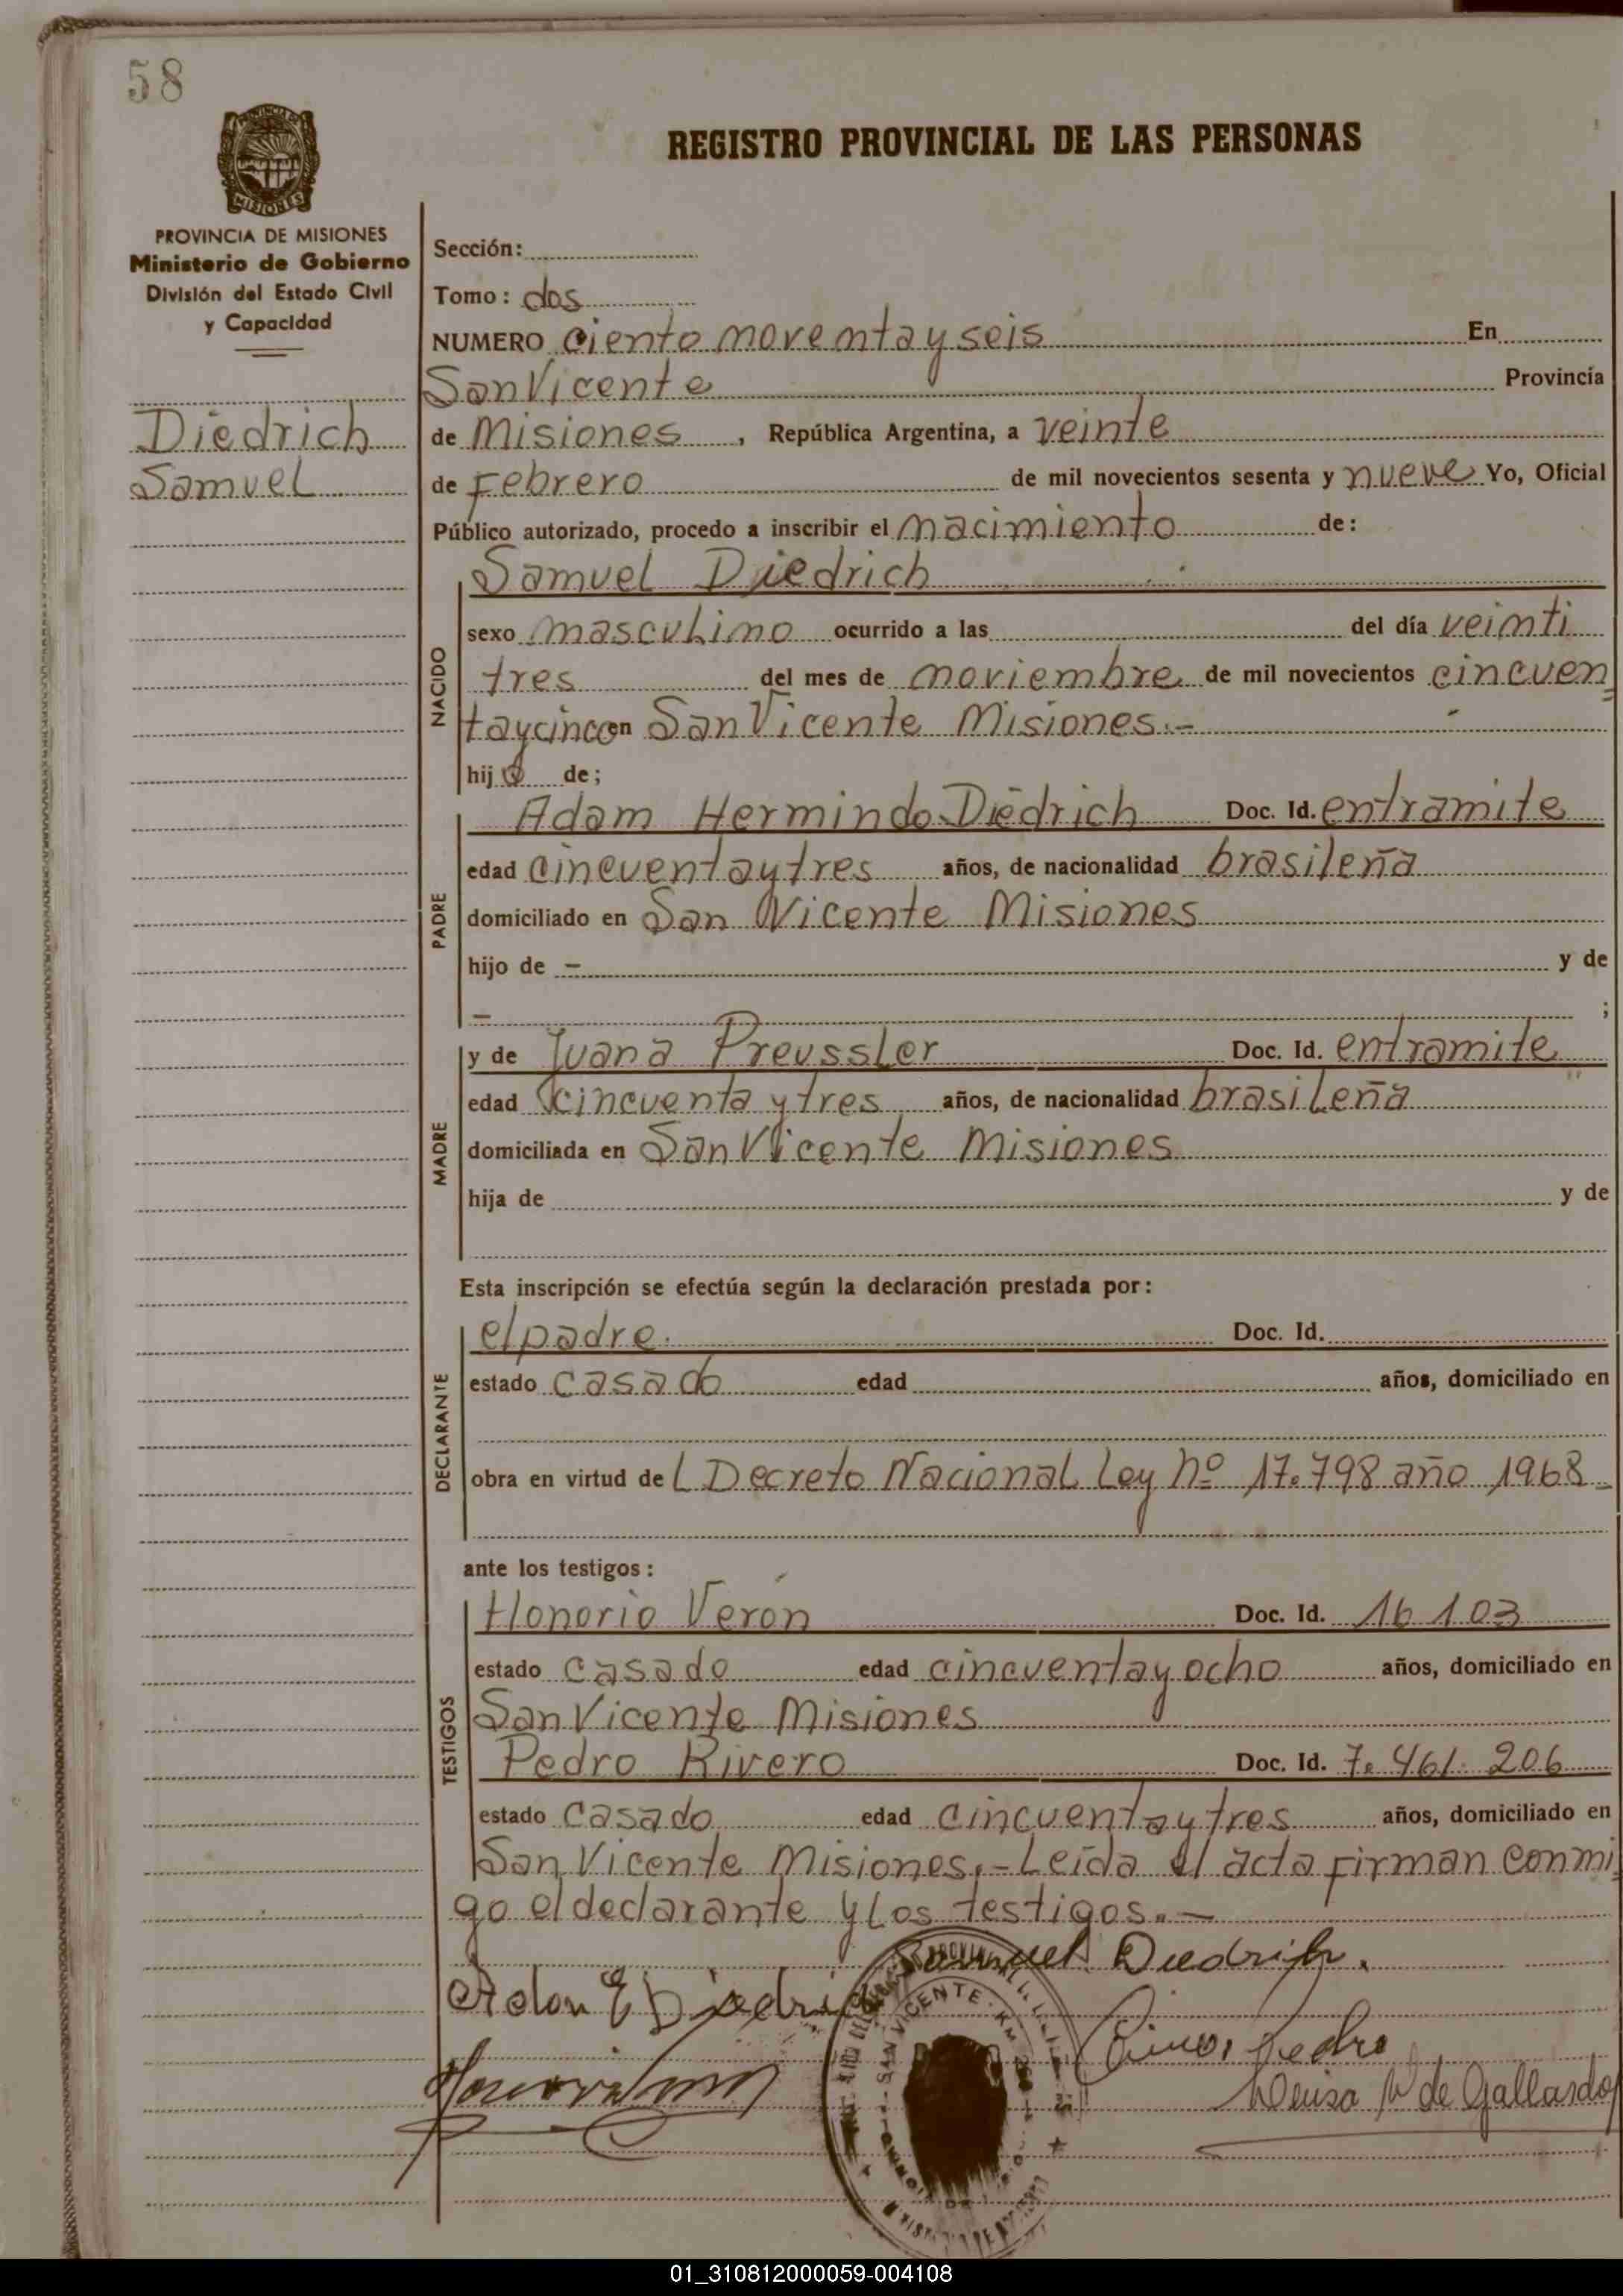 58
REGISTRO PROVINCIAL DE LAS PERSONAS
MISIONES
PROVINCIA DE MISIONES
Ministerio de Gobierno
División del Estado Civil
y Capacidad
Diedrich
Samuel
Sección:
Tomo: dos
NUMERO ciento noventa y seis En
San Vicente Provincia
de Misiones, República Argentina, a veinte
de Febrero de mil novecientos sesenta y nueve Yo, Oficial
Público autorizado, procedo a inscribir el nacimiento de:
NACIDO
Samuel Diedrich
sexo masculino ocurrido a las del día veinti
tres del mes de noviembre de mil novecientos cincuen
taycinco en San Vicente Misiones.-
hijo de;
PADRE
Adam Hermindo Diedrich Doc. Id. entramite
edad cincuentaytres años, de nacionalidad brasileña
domiciliado en San Vicente Misiones
hijo de - y de
- ;
MADRE
y de Juana Preussler Doc. Id. entramite
edad cincuenta ytres años, de nacionalidad brasileña
domiciliada en San Vicente Misiones
hija de y de
Esta inscripción se efectúa según la declaración prestada por:
DECLARANTE
el padre. Doc. Id.
estado casado edad años, domiciliado en
obra en virtud de L Decreto Nacional Ley nº 17.798 año 1968
ante los testigos:
TESTIGOS
Honorio Verón Doc. Id. 16 103
estado casado edad cincuentay ocho años, domiciliado en
San Vicente Misiones
Pedro Rivero Doc. Id. 7.461.206
estado casado edad cincuentaytres años, domiciliado en
San Vicente Misiones.-Leída el acta firman conmi
go el declarante y los testigos.-
Samuel Diedrich.
Adon E Diedri
SAN VICENTE
Pedro
de Gallardo
01_310812000059-004108